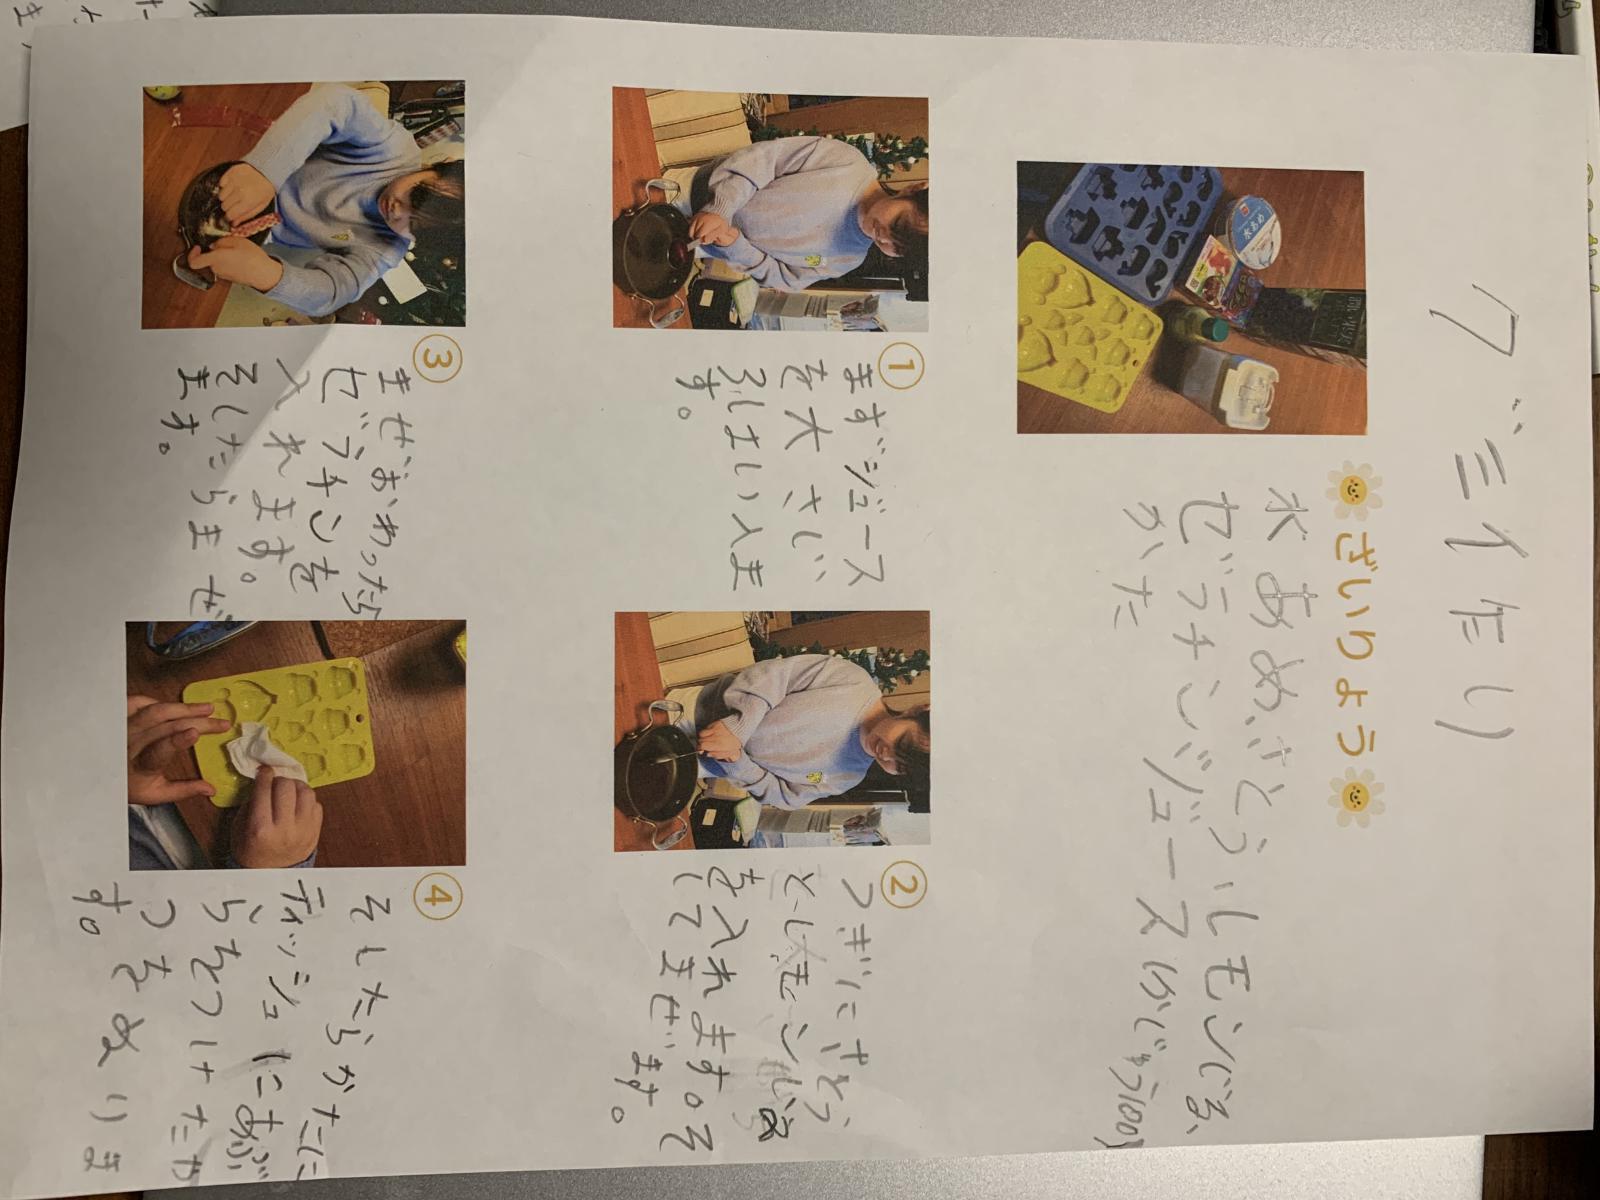 グミ作り
ざいりょう
水あめ、さとう、レモンじる、
ゼラチン、ジュース(かじゅう100)
かた
①
まずジュース
を大さじ、
ふしまい入ま
す。
②
つぎにさとう
とレモンじる
を入れます。そ
してまぜます。
③
まぜおわったら
ゼラチンを
入れます。
そしたらまぜ
ます。
④
そしたらかたに
ティッシュにあぶ
らをつけたや
つをぬりま
す。
水あめ